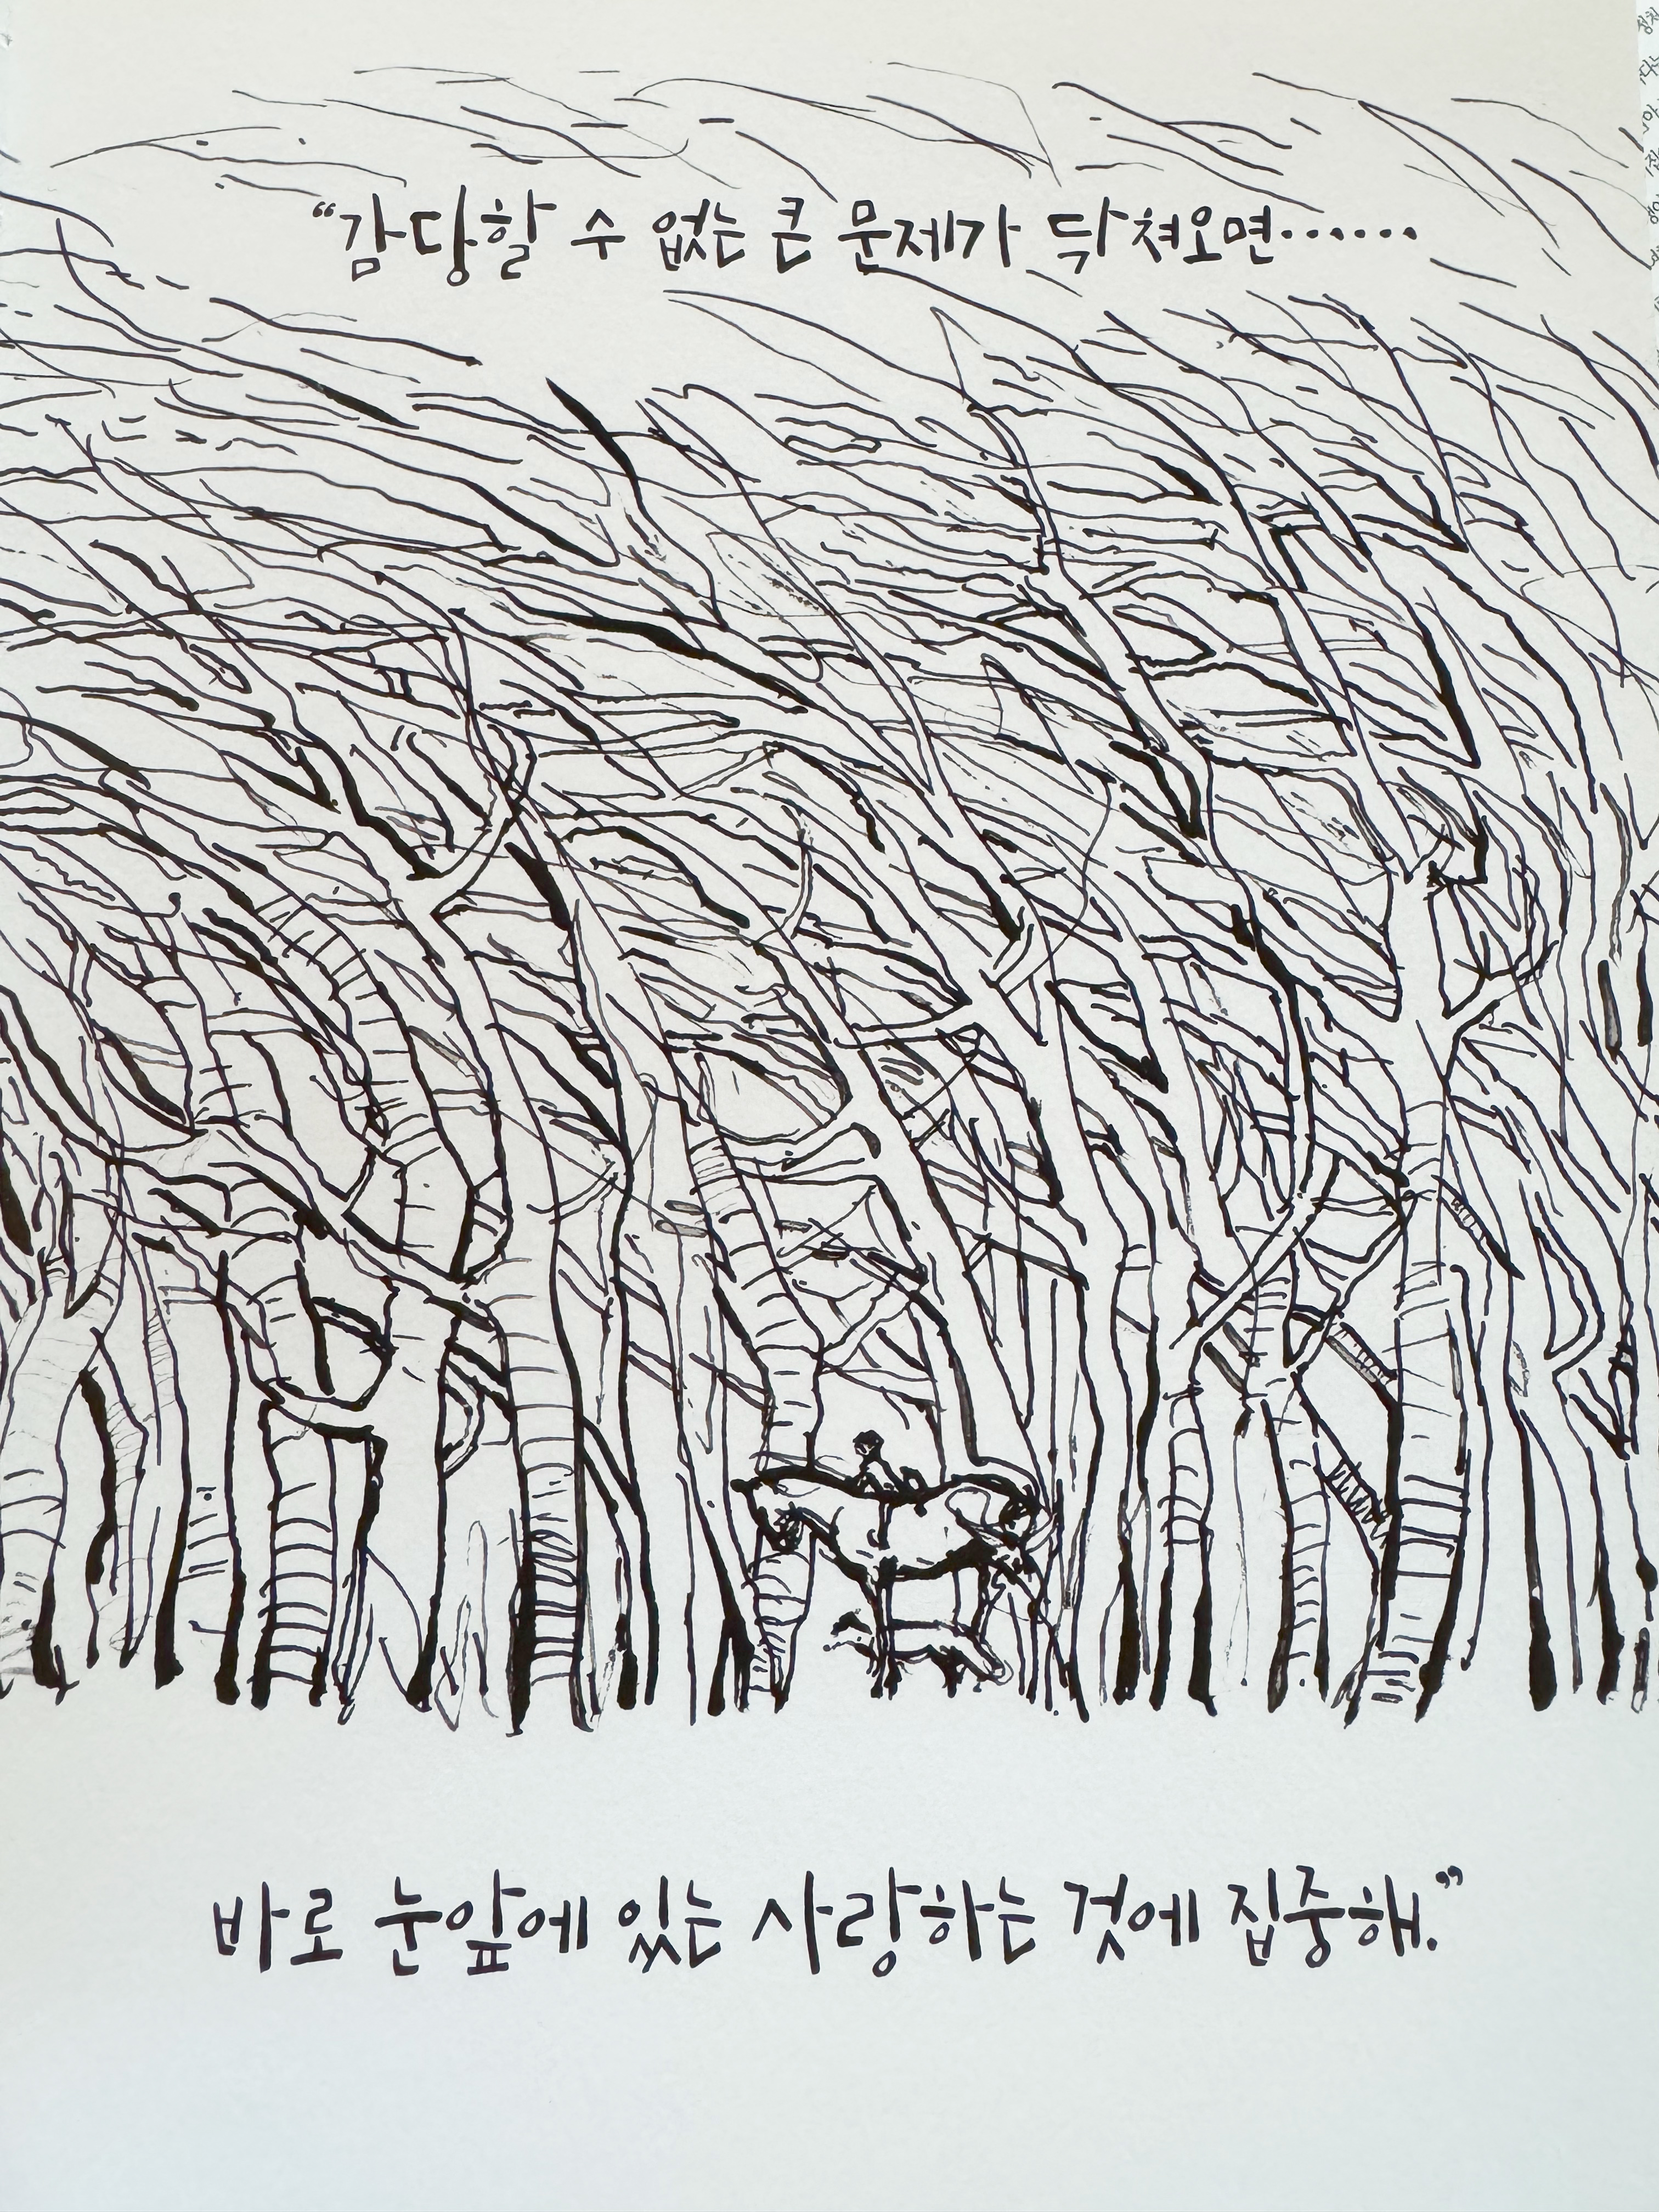 “감당할 수 없는 큰 문제가 닥쳐오면……
바로 눈앞에 있는 사랑하는 것에 집중해.”